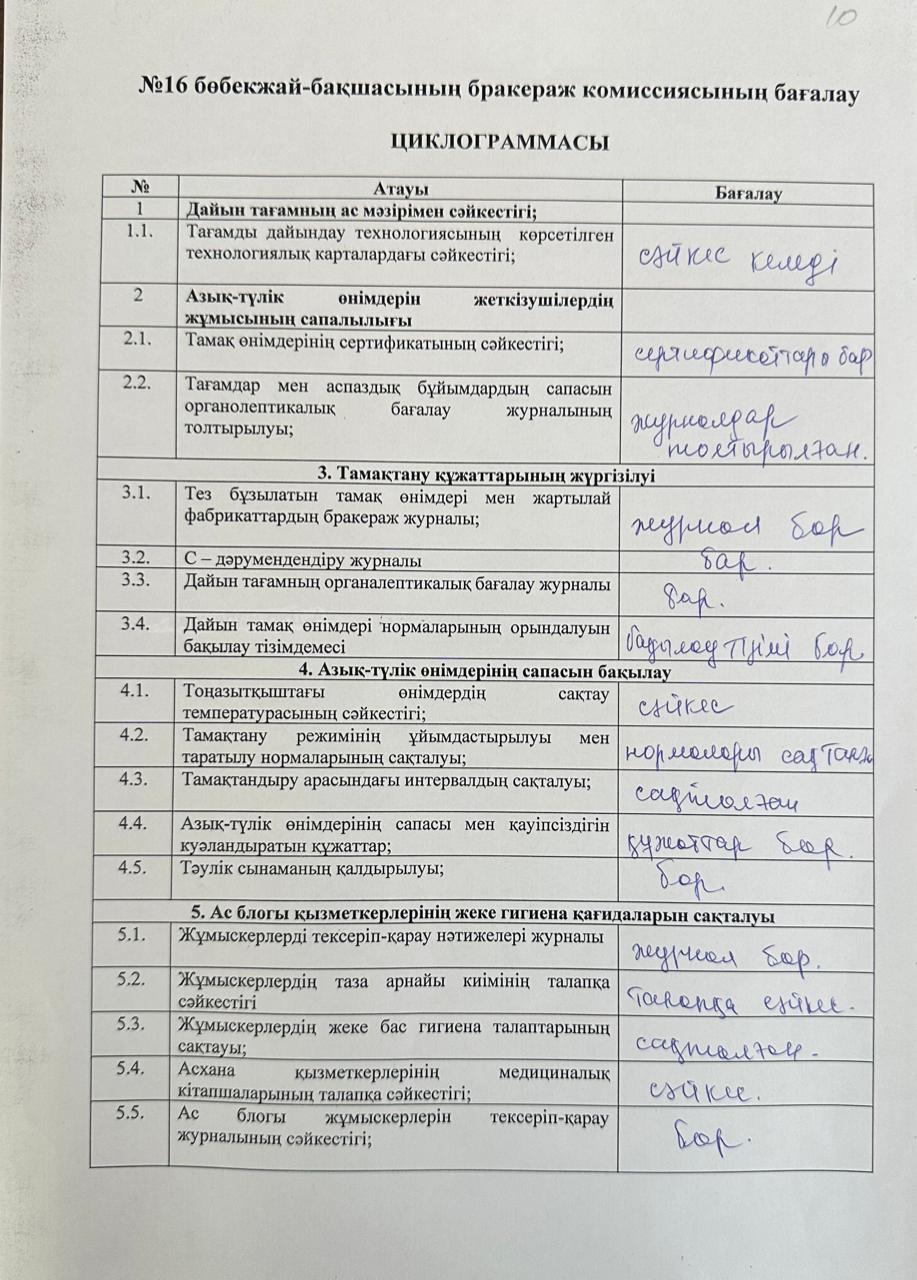 10
№16 бөбекжай-бақшасының бракераж комиссиясының бағалау
ЦИКЛОГРАММАСЫ
№ Атауы Бағалау
1 Дайын тағамның ас мәзірімен сәйкестігі;
1.1. Тағамды дайындау технологиясының көрсетілген
технологиялық карталардағы сәйкестігі; сәйкес келеді
2 Азық-түлік өнімдерін жеткізушілердің
жұмысының сапалылығы
2.1. Тамақ өнімдерінің сертификатының сәйкестігі; сертификаттары бар
2.2. Тағамдар мен аспаздық бұйымдардың сапасын
органолептикалық бағалау журналының журналдар
толтырылуы; толтырылған.
3. Тамақтану құжаттарының жүргізілуі
3.1. Тез бұзылатын тамақ өнімдері мен жартылай
фабрикаттардың бракераж журналы; журнал бар
3.2. С – дәрумендендіру журналы бар.
3.3. Дайын тағамның органалептикалық бағалау журналы бар.
3.4. Дайын тамақ өнімдері нормаларының орындалуын
бақылау тізімдемесі бақылау тізімі бар
4. Азық-түлік өнімдерінің сапасын бақылау
4.1. Тоңазытқыштағы өнімдердің сақтау
температурасының сәйкестігі; сәйкес
4.2. Тамақтану режимінің ұйымдастырылуы мен
таратылу нормаларының сақталуы; нормалары
4.3. Тамақтандыру арасындағы интервалдың сақталуы; сақталған
4.4. Азық-түлік өнімдерінің сапасы мен қауіпсіздігін
куәландыратын құжаттар; құжаттар бар.
4.5. Тәулік сынаманың қалдырылуы; бар.
5. Ас блогы қызметкерлерінің жеке гигиена қағидаларын сақталуы
5.1. Жұмыскерлерді тексеріп-қарау нәтижелері журналы журнал бар.
5.2. Жұмыскерлердің таза арнайы киімінің талапқа
сәйкестігі талапқа сәйкес.
5.3. Жұмыскерлердің жеке бас гигиена талаптарының
сақтауы; сақталған.
5.4. Асхана қызметкерлерінің медициналық
кітапшаларының талапқа сәйкестігі; сәйкес.
5.5. Ас блогы жұмыскерлерін тексеріп-қарау
журналының сәйкестігі; бар.